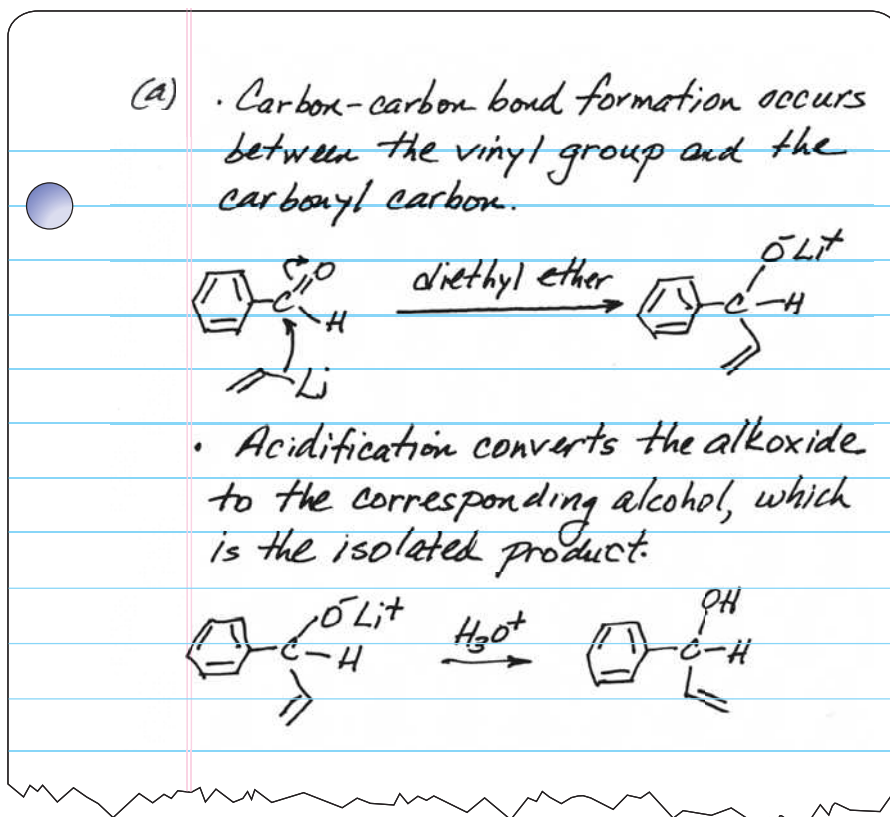 (a) · Carbon-carbon bond formation occurs
between the vinyl group and the
carbonyl carbon.
O
C
H
Li
diethyl ether
O⁻Li⁺
C-H
· Acidification converts the alkoxide
to the corresponding alcohol, which
is the isolated product.
O⁻Li⁺
C-H
H₃O⁺
OH
C-H